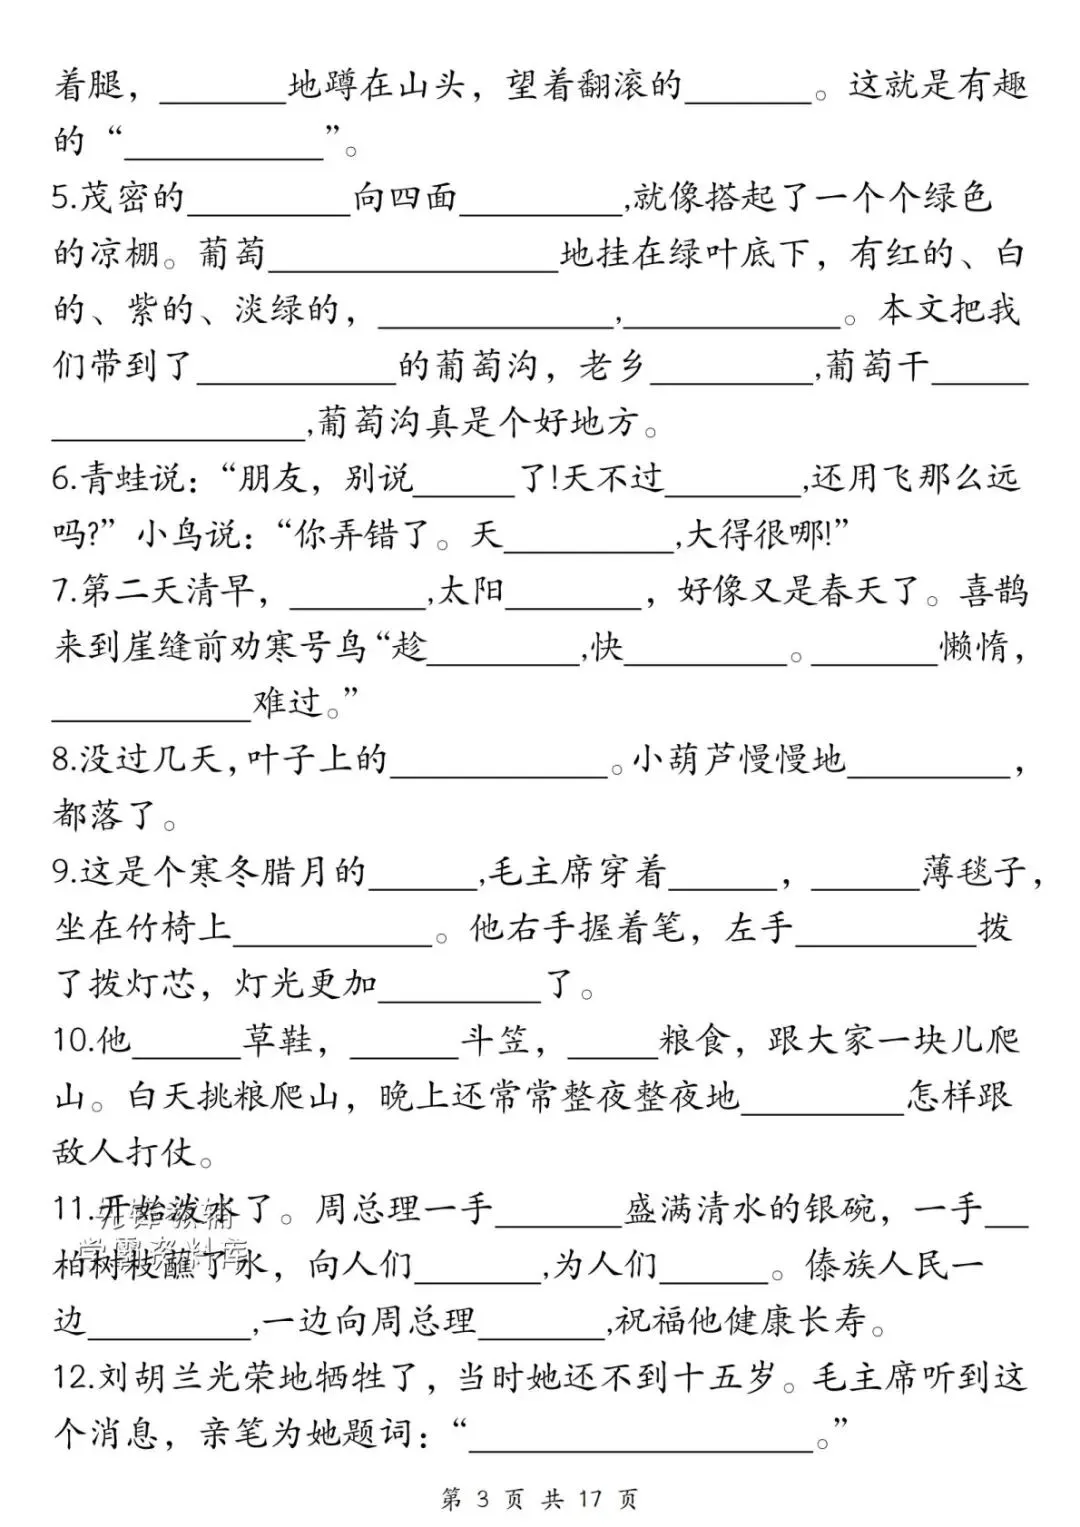 着腿，_______地蹲在山头，望着翻滚的_______。这就是有趣
的“___________”。
5.茂密的_________向四面_________,就像搭起了一个个绿色
的凉棚。葡萄________________地挂在绿叶底下，有红的、白
的、紫的、淡绿的，_____________,____________。本文把我
们带到了___________的葡萄沟，老乡_________,葡萄干_____
______________,葡萄沟真是个好地方。
6.青蛙说：“朋友，别说______了!天不过________,还用飞那么远
吗?”小鸟说：“你弄错了。天__________,大得很哪!”
7.第二天清早，________,太阳________，好像又是春天了。喜鹊
来到崖缝前劝寒号鸟“趁_________,快_________。_______懒惰，
___________难过。”
8.没过几天,叶子上的____________。小葫芦慢慢地_________，
都落了。
9.这是个寒冬腊月的______,毛主席穿着______，______薄毯子，
坐在竹椅上___________。他右手握着笔，左手__________拨
了拨灯芯，灯光更加_________了。
10.他______草鞋，______斗笠，_____粮食，跟大家一块儿爬
山。白天挑粮爬山，晚上还常常整夜整夜地_________怎样跟
敌人打仗。
11.开始泼水了。周总理一手_______盛满清水的银碗，一手__
柏树枝蘸了水，向人们_______,为人们______。傣族人民一
边_________,一边向周总理_______,祝福他健康长寿。
12.刘胡兰光荣地牺牲了，当时她还不到十五岁。毛主席听到这
个消息，亲笔为她题词：“___________________。”
第 3 页 共 17 页